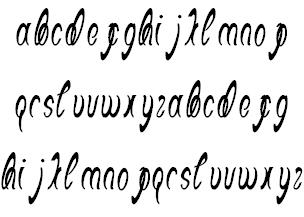 abcdefghijklmnop
qrstuvwxyzabcdefg
hijklmnopqrstuvwxyz